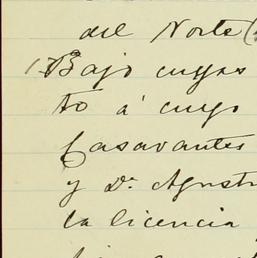 del Norte (
Bajo cuyas
to á cuyo
Casavantes
y Dn. Agustn
la licencia